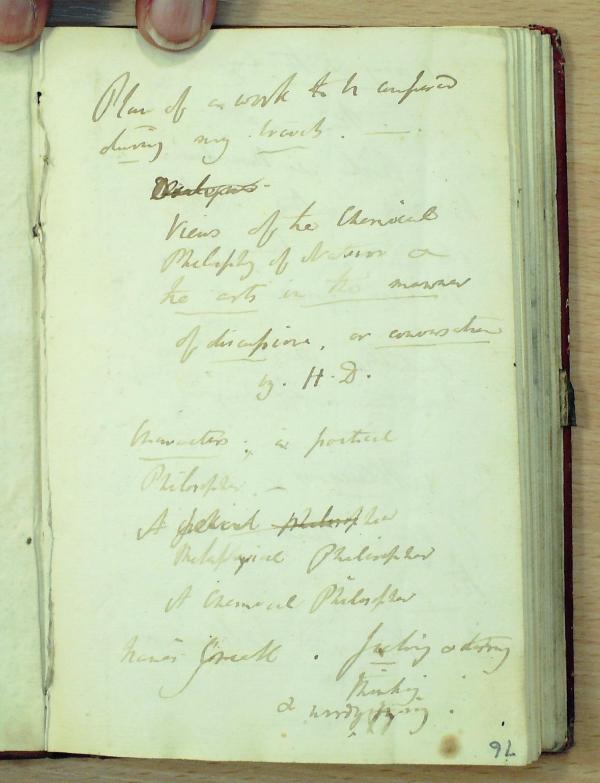 Plan of a work to be composed
during my travels. —
Dialogues -
Views of the Chemical
Philosophy of Nature &
the arts in the manner
of discussions, or conversation
by. H. D.
Characters; a poetical
Philosopher —
A poetical philosopher
Metaphysical Philosopher
A Chemical Philosopher
names Greek. feeling & doing
thinking
&
92